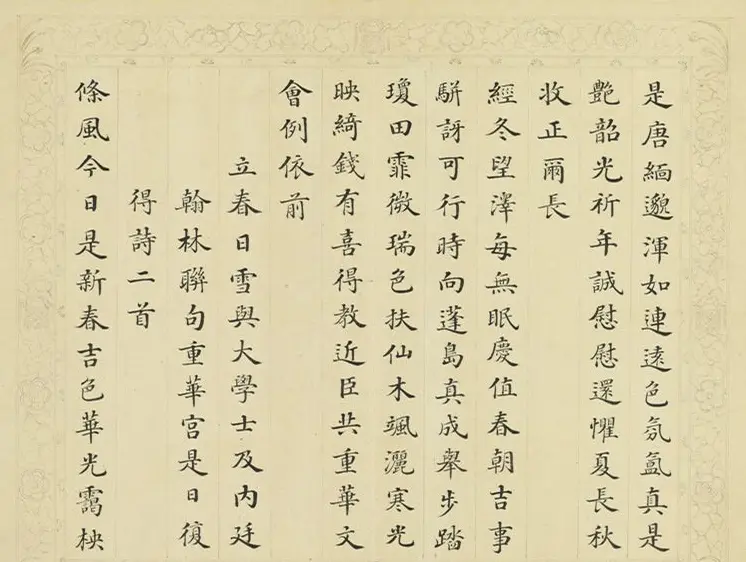 是唐緬邈渾如連遠色氛氳真是
艷韶光祈年誠慰慰還懼夏長秋
收正爾長
經冬望澤每無眠慶值春朝吉事
駢訝可行時向蓬島真成舉步踏
瓊田霏微瑞色扶仙木颯灑寒光
映綺錢有喜得教近臣共重華文
會例依前
立春日雪與大學士及內廷
翰林聯句重華宮是日復
得詩二首
條風今日是新春吉色華光靄柍